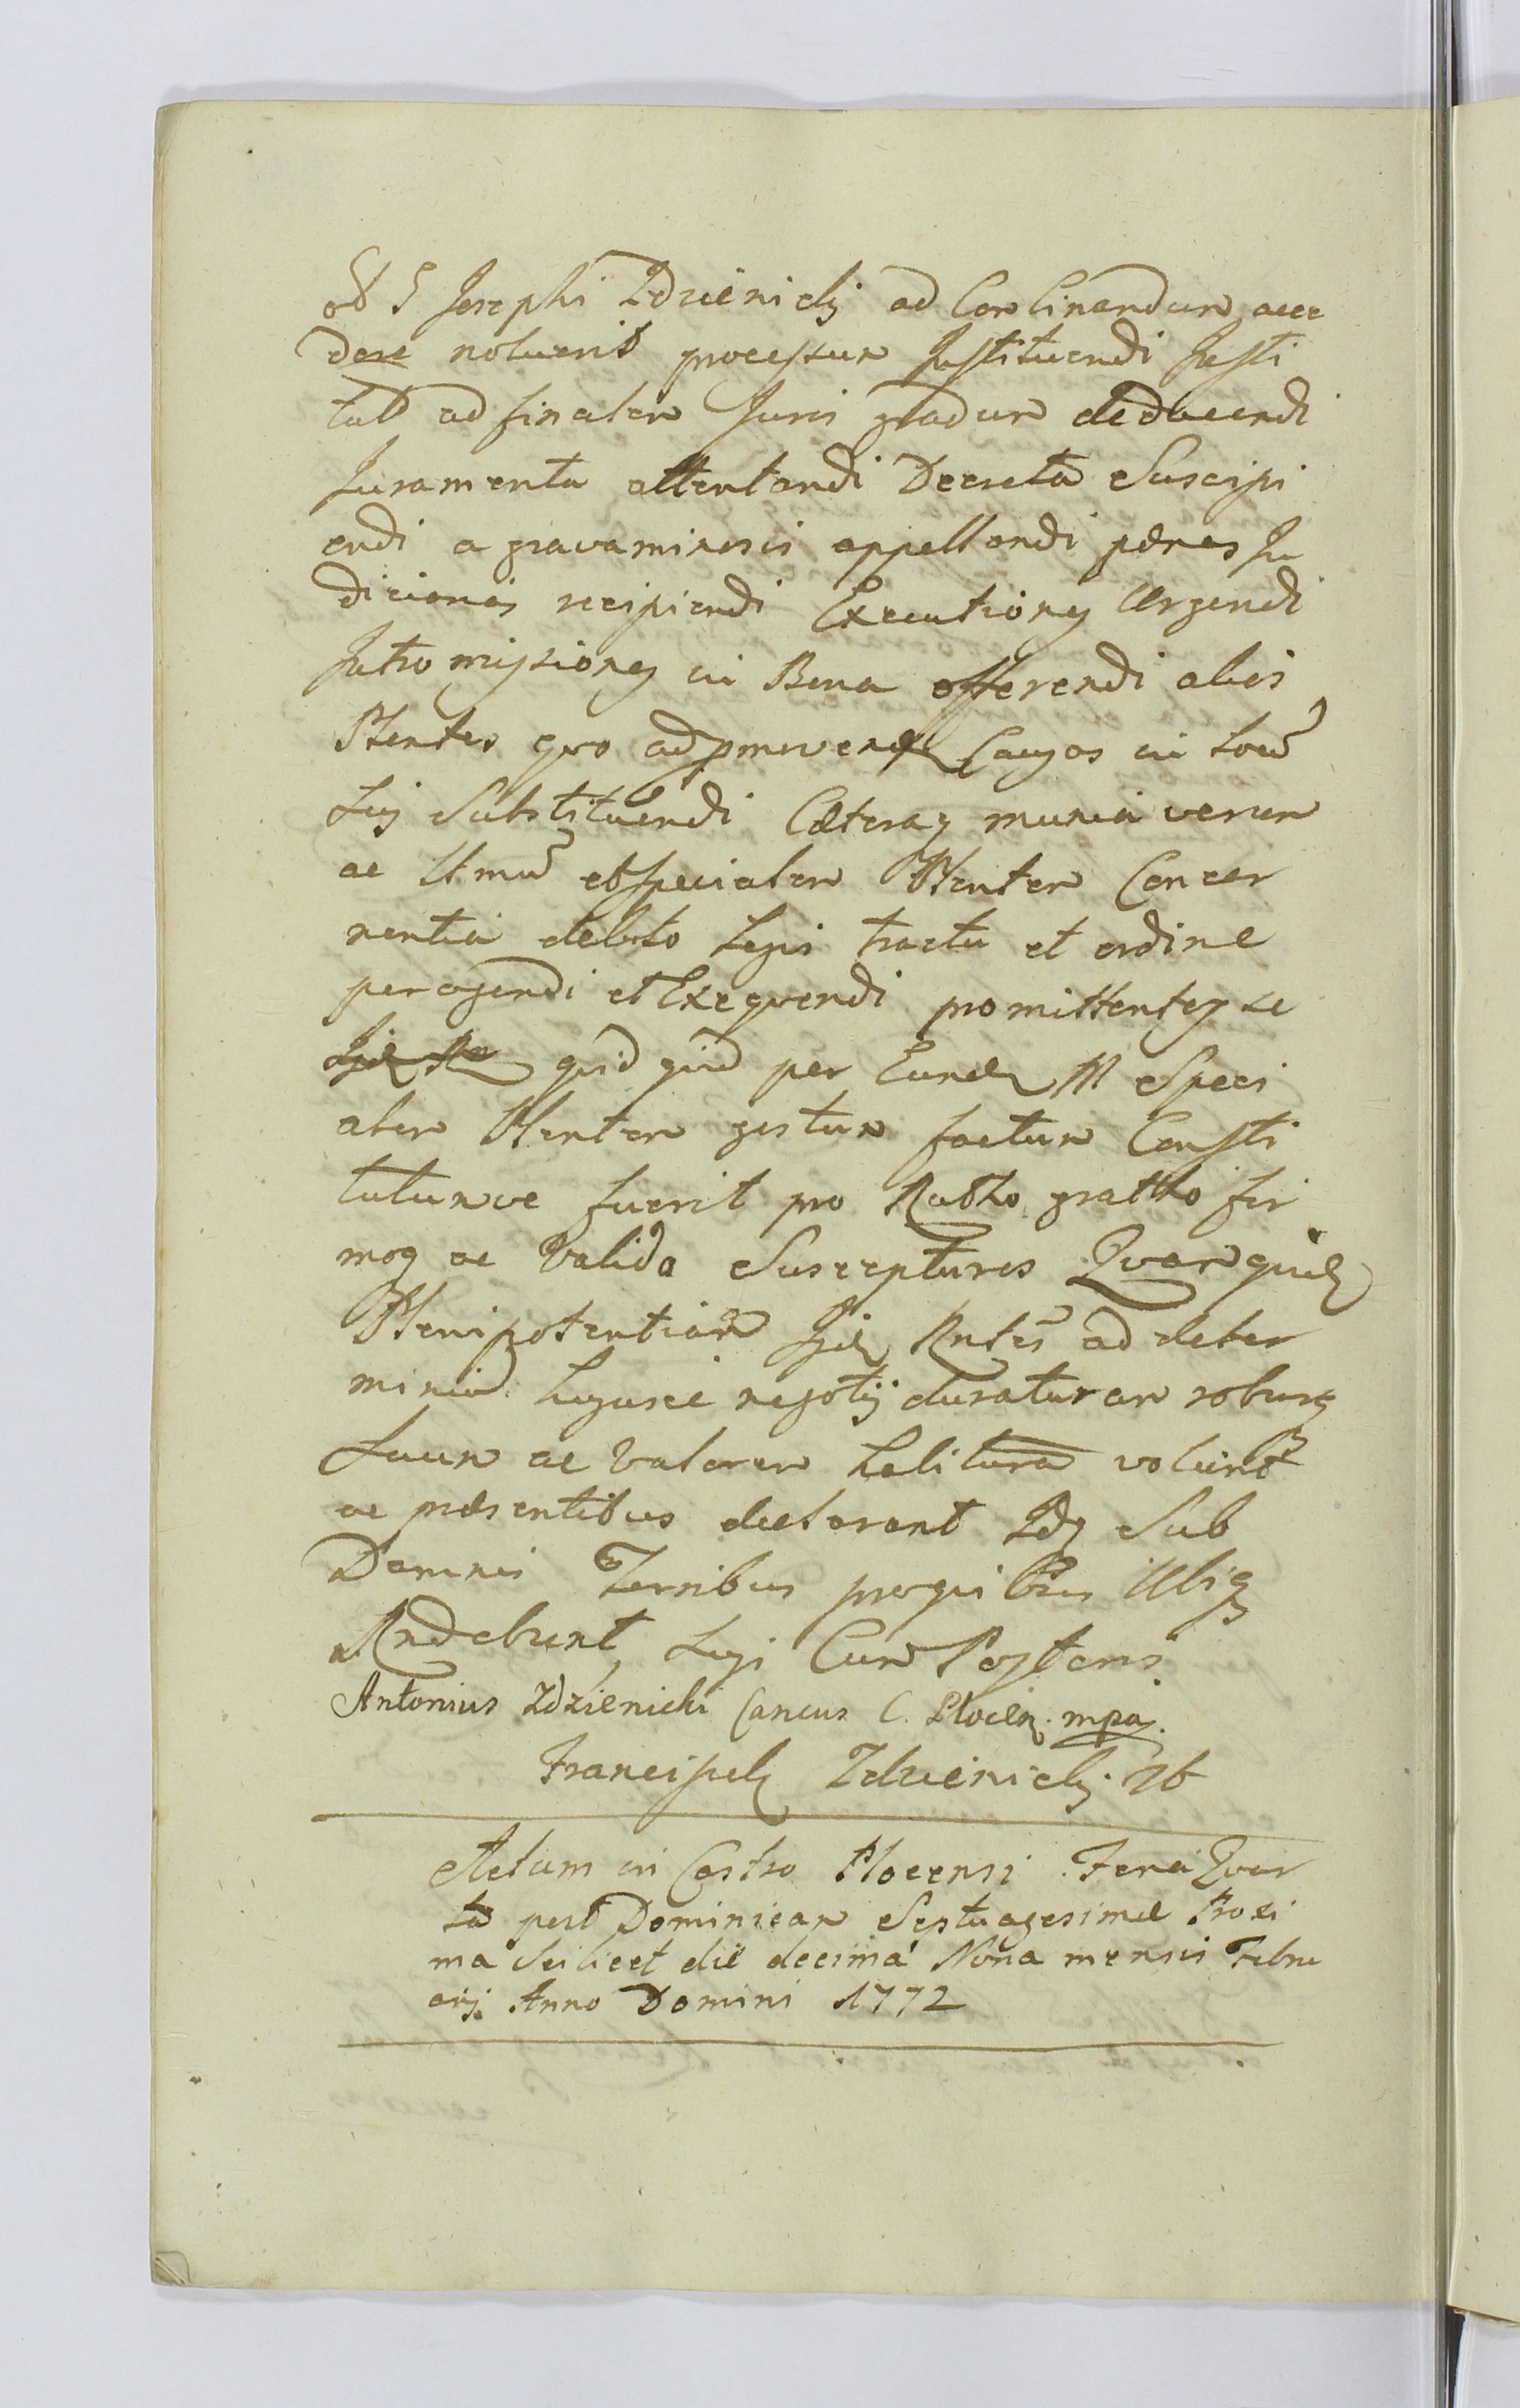 et S Josephi Zdzienicky ad Conlinandum acce
dere noluerit processum Justituendi Justi
tut ad finalem Juris gradum deducendi
Juramenta attentandi Decreta Suscipi
endi a gravaminosis appellandi pænas Ju
diciarias recipiendi Executiones Urgendi
Intromissiones in Bona offerendi alios
Plentes quo ad pmovend Causas in Locũ
Sui Substituendi Cæteraq munia verum
ac Ltmũ et Specialem Plentem Concer
nentia debito Legis tractu et ordine
peragendi et Exequendi promittentes se
quid quid per Eund M Speci
alem Plentem gestum factum Consti
tutumve fuerit pro Ratho grattho fir
moq ac Valido Suscepturos Quamquid
Plenipotentiam Jid Rntes ad deter
minad hujusce negotij duraturam roburq
Suum ac Valorem habituram volunt
ac præsentibus declarant Idq Sub
Damnis Terribus pro quibus Ubiq
Rndebunt Suji Cum Posteris
Antonius Zdzienicki Cancus C. Plocen. mpa.
Francisek Zdzienicky. Zb
Actum in Castro Plocensi Feria Quar
ta post Dominicam Septuagesimæ Proxi
ma Scilicet die decima Nona mensis Febru
arij Anno Domini 1772